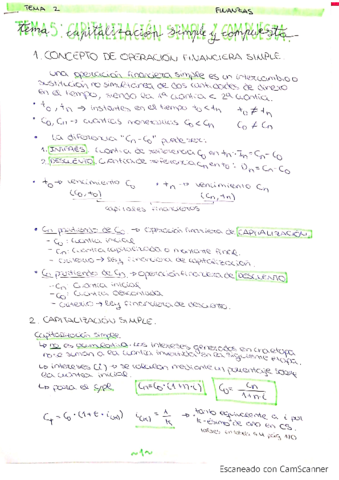 TEMA 2 FINANZAS
Tema 5: capitalización simple y compuesta
1. CONCEPTO DE OPERACION FINANCIERA SIMPLE.
una operación financiera simple es un intercambio o
sustitución no simultánea de dos cantidades de dinero
en el tiempo, siendo la 1ª cuantía < 2ª cuantía.
• t₀, tn → instantes en el tiempo t₀ < tn t₀ ≠ tn
• C₀, Cn → cuantías monetarias C₀ < Cn C₀ ≠ Cn
• La diferencia "Cn - C₀" puede ser:
1. INTERÉS: cuantía de referencia C₀ en tn: In = Cn - C₀
2. DESCUENTO: cuantía de referencia Cn en t₀: Dn = Cn - C₀
• t₀ → vencimiento C₀ • tn → vencimiento Cn
(C₀, t₀) (Cn, tn)
capitales financieros
• Cn partiendo de C₀ → operación financiera de CAPITALIZACIÓN,
- C₀: cuantía inicial
- Cn: cuantía capitalizada o montante final.
- criterio → ley financiera de capitalización.
• C₀ partiendo de Cn → operación financiera de DESCUENTO
- Cn: cuantía inicial
- C₀: cuantía descontada
- criterio → ley financiera de descuento.
2. CAPITALIZACIÓN SIMPLE.
Capitalización simple:
↳ no es acumulativa: los intereses generados en una etapa
no se suman a la cuantía invertida en la siguiente etapa.
↳ intereses (i) → se calculan mediante un porcentaje sobre
la cuantía inicial.
Cn = C₀ · (1 + n · i) C₀ = Cn / 1 + n · i
i(k) = i / k → tanto equivalente a i por
k-ésimo de año en CS.
~1~
Escaneado con CamScanner